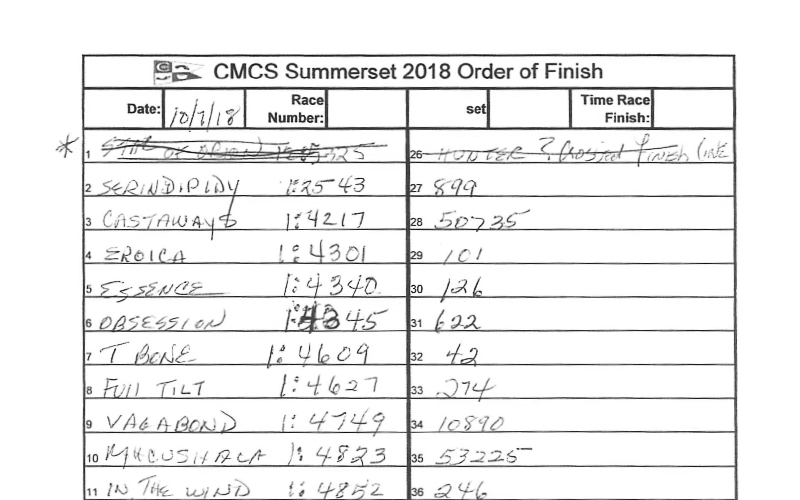 CMCS Summerset 2018 Order of Finish
Date: 10/7/18 Race Number: set Time Race Finish:
* 1 STAR OF ORION 325 26 HUNTER ? Crossed Finish Line
2 SERINDIPIDY 1:25 43 27 899
3 CASTAWAYS 1:4217 28 50735
4 EROICA 1:4301 29 101
5 ESSENCE 1:4340 30 126
6 OBSESSION 1:4345 31 622
7 T BONE 1:4609 32 42
8 FUll TILT 1:4627 33 274
9 VAGABOND 1:4749 34 10890
10 1:4823 35 53225
11 IN THE WIND 1:4852 36 246